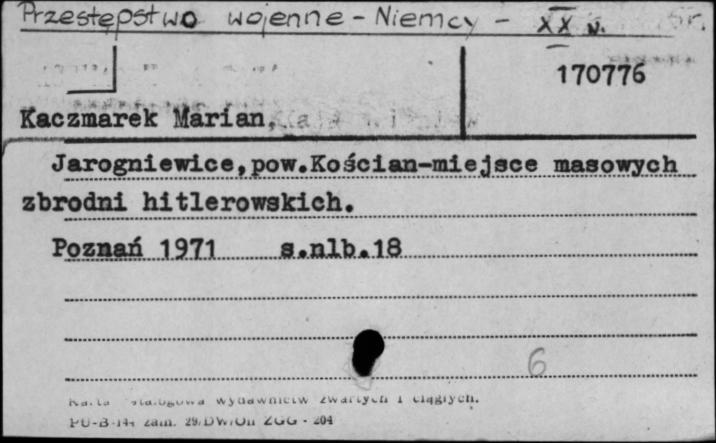 Przestępstwo wojenne - Niemcy - XX w.
170776
Kaczmarek Marian,
Jarogniewice,pow.Kościan-miejsce masowych
zbrodni hitlerowskich.
Poznań 1971 s.nlb.18
6
wydawnictw zwartych i ciągłych.
PU-B-144 zam. 29/DWiOn ZGG - 204